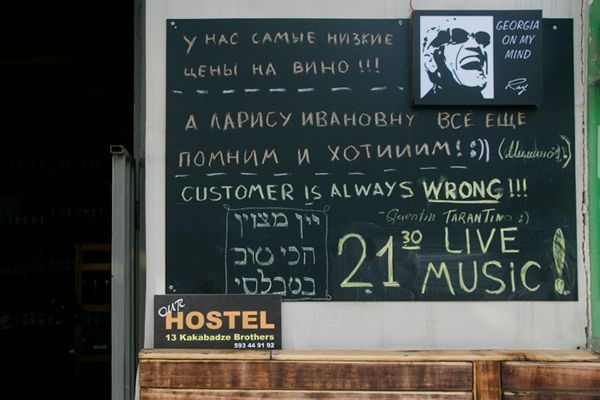 У НАС САМЫЕ НИЗКИЕ
ЦЕНЫ НА ВИНО!!!
GEORGIA
ON MY
MIND
Ray
А ЛАРИСУ ИВАНОВНУ ВСЁ ЕЩЕ
ПОМНИМ И ХОТИИИМ!:)) (Мимино!)
CUSTOMER IS ALWAYS WRONG!!!
- Quentin TARANTINO :)
יין מצוין
הכי טוב
בטבלסי
21 30 LIVE
MUSIC!
OUR
HOSTEL
13 Kakabadze Brothers
593 44 91 92